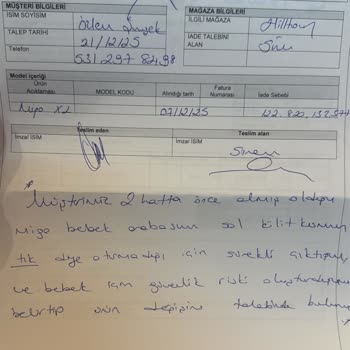 MÜŞTERİ BİLGİLERİ
İSİM SOYİSİM Özlem Şimşek
TALEP TARİHİ 21/12/25
Telefon 531.297 8498
MAĞAZA BİLGİLERİ
İLGİLİ MAĞAZA Hilltown
İADE TALEBİNİ ALAN
Model içeriği
Ürün Açıklaması MODEL KODU Alındığı tarih Fatura Numarası İade Sebebi
07/12/25
Teslim eden Teslim alan
İmza/ İSİM İmza/ İSİM
Sinem
Müştrimiz 2 hafta önce almış olduğu
bebek arabasının sol kilit kısmının
tık diye oturmadığı için sürekli çıktığını
ve bebek için güvenlik riski oluşturduğunu
belirtip ürün değişimi talebinde